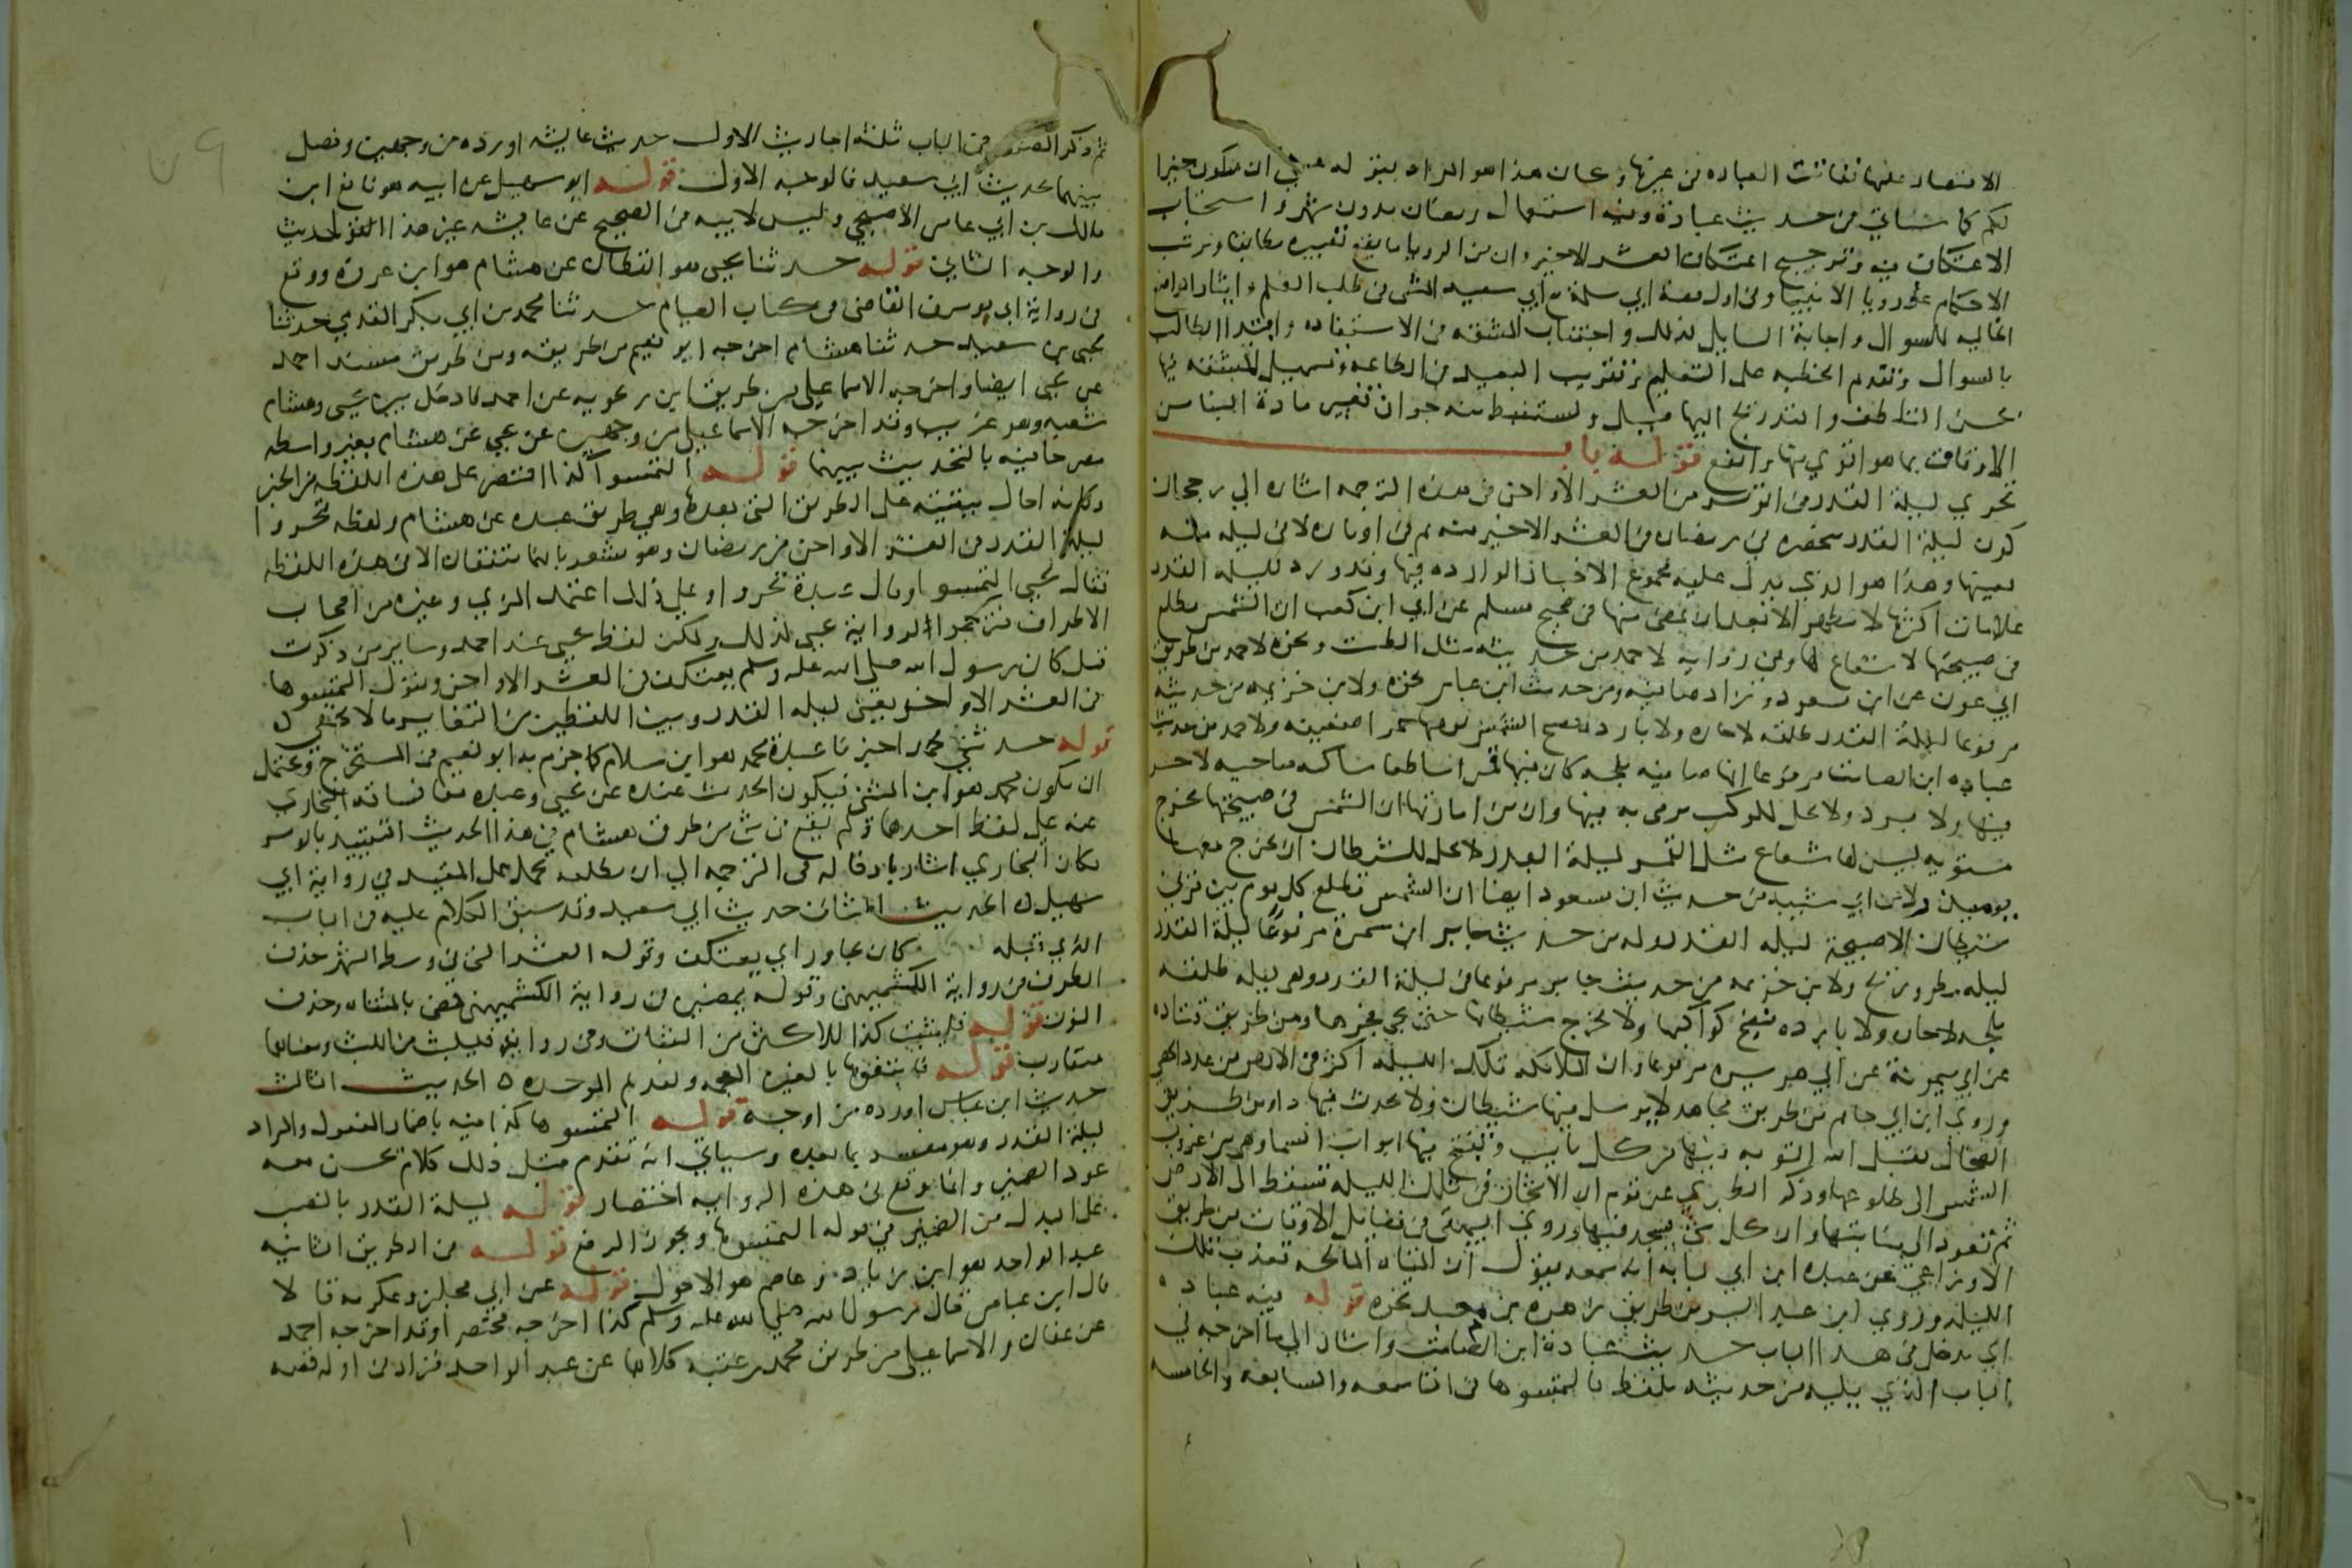 الاقتصار عليها تفاتت العباده في غيرها وكان هذا هو المراد بقوله عسى ان يكون خيرا
لكم كما سياتي من حديث عبادة وفيه استعمال رمضان بدون شهر واستحباب
الاعتكاف فيه وترجيح اعتكاف العشر الاخير وان من الرويا ما يقع تعبيره مطابقا وترتب
الاحكام على رويا الانبيا وفي اول قصة ابي سلمة مع ابي سعيد المشي في طلب العلم وايثار المواضع
الخاليه للسوال واجابة السايل لذلك واجتناب المشقه في الاستفاده وابتدا الطالب
بالسوال وتقدم الخطبه على التعليم وتقريب البعيد في الطاعه وتسهيل المشقه فيها
بحسن التلطف والتدريج اليها قيل ويستنبط منه جواز تغيير مادة البنا من
الاوقاف بما هو اقوي منها وانفع قوله باب
تحري ليلة القدر في الوتر من العشر الاواخر في هذه الترجمه اشاره الي رجحان
كون ليلة القدر منحصره في رمضان في العشر الاخير منه ثم في اوتاره لا في ليله منه
بعينها وهذا هو الذي يدل عليه مجموع الاخبار الوارده فيها وقد ورد لليله القدر
علامات اكثرها لا تظهر الا بعد ان تمضي منها في صحيح مسلم عن ابي ابن كعب ان الشمس تطلع
في صبيحتها لا شعاع لها وفي روايه لاحمد من حديثه مثل الطست ونحوه لاحمد من طريق
ابي عون عن ابن مسعود وزاد صافيه ومن حديث ابن عباس نحوه ولابن خزيمه من حديثه
مرفوعا ليلة القدر طلقه لا حاره ولا بارده تصبح الشمس يومها حمرا ضعيفه ولاحمد من حديث
عباده ابن الصامت مرفوعا انها صافيه بلجه كان فيها قمرا ساطعا ساكنه صاحيه لا حر
فيها ولا برد ولا يحل للوكب يرمي به فيها وان من امارتها ان الشمس في صبيحتها تخرج
مستويه ليس لها شعاع مثل القمر ليلة البدر لا يحل للشيطان ان يخرج معها
يوميذ ولابن ابي شيبه من حديث ابن مسعود ايضا ان الشمس تطلع كل يوم بين قرني
شيطان الا صبيحة ليله القدر وله من حديث جابر ابن سمرة مرفوعا ليلة القدر
ليله مطر وريح ولابن خزيمه من حديث جابر مرفوعا في ليلة القدر وهي ليله طلقه
بلجه لا حاره ولا بارده تتضح كواكبها ولا يخرج شيطانها حتى يضي فجرها ومن طريق قتاده
عن ابي ميمونة عن ابي هريره مرفوعا وان الملائكه تلك الليله اكثر في الارض من عدد الحصى
وروي ابن ابي حاتم من طريق مجاهد لا يرسل فيها شيطان ولا يحدث فيها داومن طريق
الضحاك يقبل الله التوبه فيها من كل تايب وتفتح فيها ابواب السما وهي من غروب
الشمس الى طلوعها وذكر الطبري عن قوم ان الاشجار في تلك الليله تسقط الى الارض
ثم تعود الى منابتها وان كل شي يسجد فيها وروي البيهقي في فضايل الاوقات من طريق
الاوزاعي عن عبده ابن ابي لبابه انه سمعه يقول ان المياه المالحه تعذب تلك
الليله وروي ابن عبد البر من طريق زهره بن معبد نحوه قوله فيه عباده
اي يدخل في هذا الباب حديث عبادة ابن الصامت واشار الي ما اخرجه في
الباب الذي يليه من حديثه بلفظ فالتمسوها في التاسعه والسابعه والخامسه
ثم ذكر المصنف في الباب ثلثة احاديث الاول حديث عايشه اورده من وجهين وفصل
بينهما بحديث ابي سعيد فالوجه الاول قوله ابو سهيل عن ابيه هو نافع ابن
مالك بن ابي عامر الاصبحي وليس لابيه في الصحيح عن عايشه غير هذا الحديث
والوجه الثاني قوله حدثنا يحيى هو القطان عن هشام هو ابن عروة ووقع
في رواية ابي يوسف القاضي في كتاب الصيام حدثنا محمد بن ابي بكر المقدمي حدثنا
يحيى بن سعيد حدثنا هشام اخرجه ابو نعيم من طريقه ومن طريق مسند احمد
عن يحيى ايضا واخرجه الاسماعيلي من طريق ابن زنجويه عن احمد فادخل بين يحيى وهشام
شعبه وهو غريب وقد اخرجه الاسماعيلي من وجهين عن يحيى عن هشام بغير واسطه
مصرحا فيه بالتحديث بينهما قوله التمسوا كذا اقتصر على هذه اللفظه من الخبر
وكانه احال ببقيته على الطريق التي بعدها وهي طريق عبده عن هشام ولفظه تحروا
ليلة القدر في العشر الاواخر من رمضان وهو مشعر بانهما متفقان الا في هذه اللفظه
فقال يحيى التمسوا وقال عبدة تحروا وعلى ذلك اعتمد المزي وغيره من اصحاب
الاطراف فترجموا لرواية يحيى لذلك ولكن لفظ يحيى عند احمد وساير من ذكرت
قبل كان رسول الله صلى الله عليه وسلم يعتكف في العشر الاواخر ويقول التمسوها
في العشر الاواخر يعني ليله القدر وبين اللفظين من التغاير ما لا يخفى
قوله حدثني محمد اخبرنا عبدة محمد هو ابن سلام كما جزم به ابو نعيم في المستخرج ويحتمل
ان يكون محمد هو ابن المثنى فيكون الحديث عنده عن يحيى وعبده معا فساقه البخاري
عنه على لفظ احدهما ولم يقع في شي من طرق هشام في هذا الحديث التقييد بالوتر
وكان البخاري اشار بادخاله في الترجمه الى ان مطلقه محمول على المقيد في رواية ابي
سهيل الحديث الثاني حديث ابي سعيد وقد سبق الكلام عليه في الباب
الذي قبله كان يجاور اي يعتكف وقوله العشر التي في وسط الشهر حذف
الظرف من رواية الكشميهني وقوله يمضين في رواية الكشميهني تمضي بالمثناه وحذف
النون قوله فليثبت كذا للاكثر من الثبات وفي رواية فليلبث من اللبث ومعناهما
متقارب قوله فابتغوها بالغين المعجمه وتقديم الموحده ه الحديث الثالث
حديث ابن عباس اورده من اوجه قوله التمسوها كذا فيه باضمار المفعول والمراد
ليلة القدر وهو مفسر بما بعده وسياتي انه تقدم قبل ذلك كلام يحسن معه
عود الضمير وانما وقع في هذه الروايه اختصار قوله ليلة القدر بالنصب
على البدل من الضمير في قوله التمسوها ويجوز الرفع قوله في الطريق الثانيه
عبد الواحد هو ابن زياد وعاصم هو الاحول قوله عن ابي مجلز وعكرمه قالا
قال ابن عباس قال رسول الله صلى الله عليه وسلم كذا اخرجه مختصرا وقد اخرجه احمد
عن عفان والاسماعيلي من طريق محمد بن عقبه كلاهما عن عبد الواحد فزاد في اوله قصه